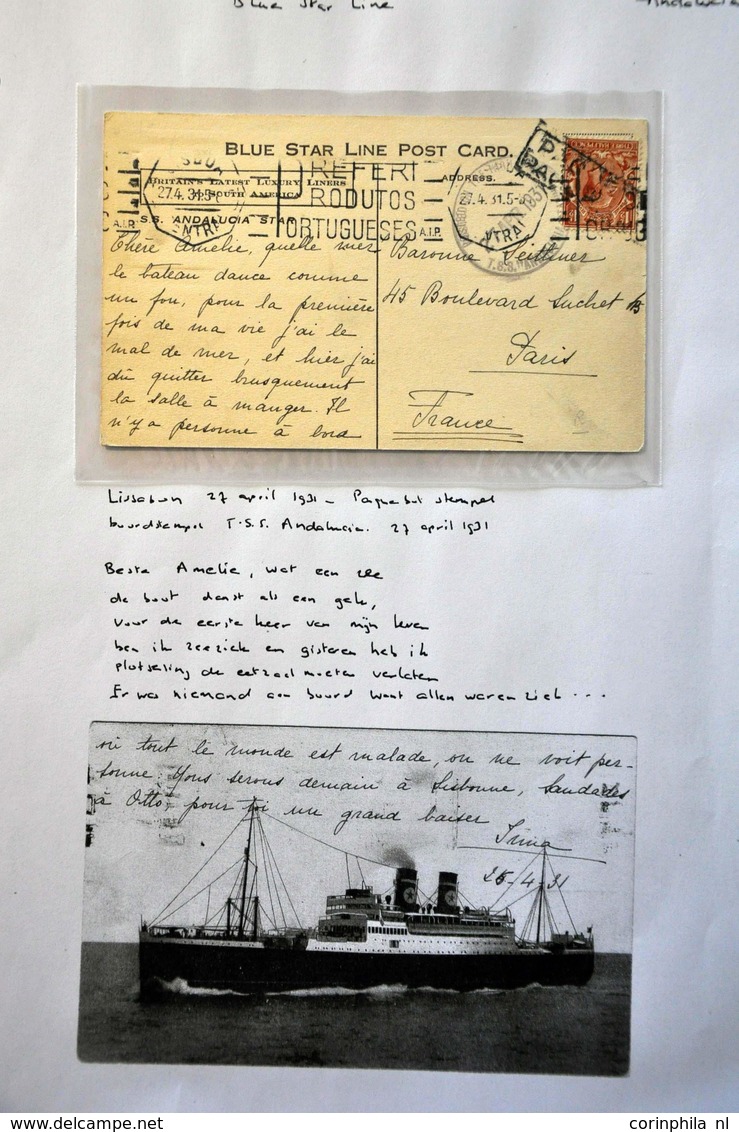 Blue Star Line
BLUE STAR LINE POST CARD.
BRITAIN'S LATEST LUXURY LINERS
SOUTH AMERICA
S.S. ANDALUCIA STAR
A.I.P.
ADDRESS.
27.4.31.5-
NTRA
PREFERI
PRODUTOS
PORTUGUESES
A.I.P.
27.4.31.5-
NTRA
1931
T.S.S.
Chère Amélie, quelle mer
le bateau dance comme
un fou, pour la première
fois de ma vie j'ai le
mal de mer, et hier j'ai
dû quitter brusquement
la salle à manger. Il
n'y a personne à bord
Baronne
45 Boulevard Suchet
Paris
France
Lissabon 27 april 1931 – Paquebot stempel
boordstempel T.S.S. Andalucia. 27 april 1931
Beste Amelie, wat een zee
de boot danst als een gek,
voor de eerste keer van mijn leven
ben ik zeeziek en gisteren heb ik
plotseling de eetzaal moeten verlaten
Er was niemand aan boord want allen waren ziek ...
où tout le monde est malade, on ne voit per-
sonne. Nous serons demain à Lisbonne, Saudades
à Otto pour toi un grand baiser
Irma
25-4-31
corinphila nl